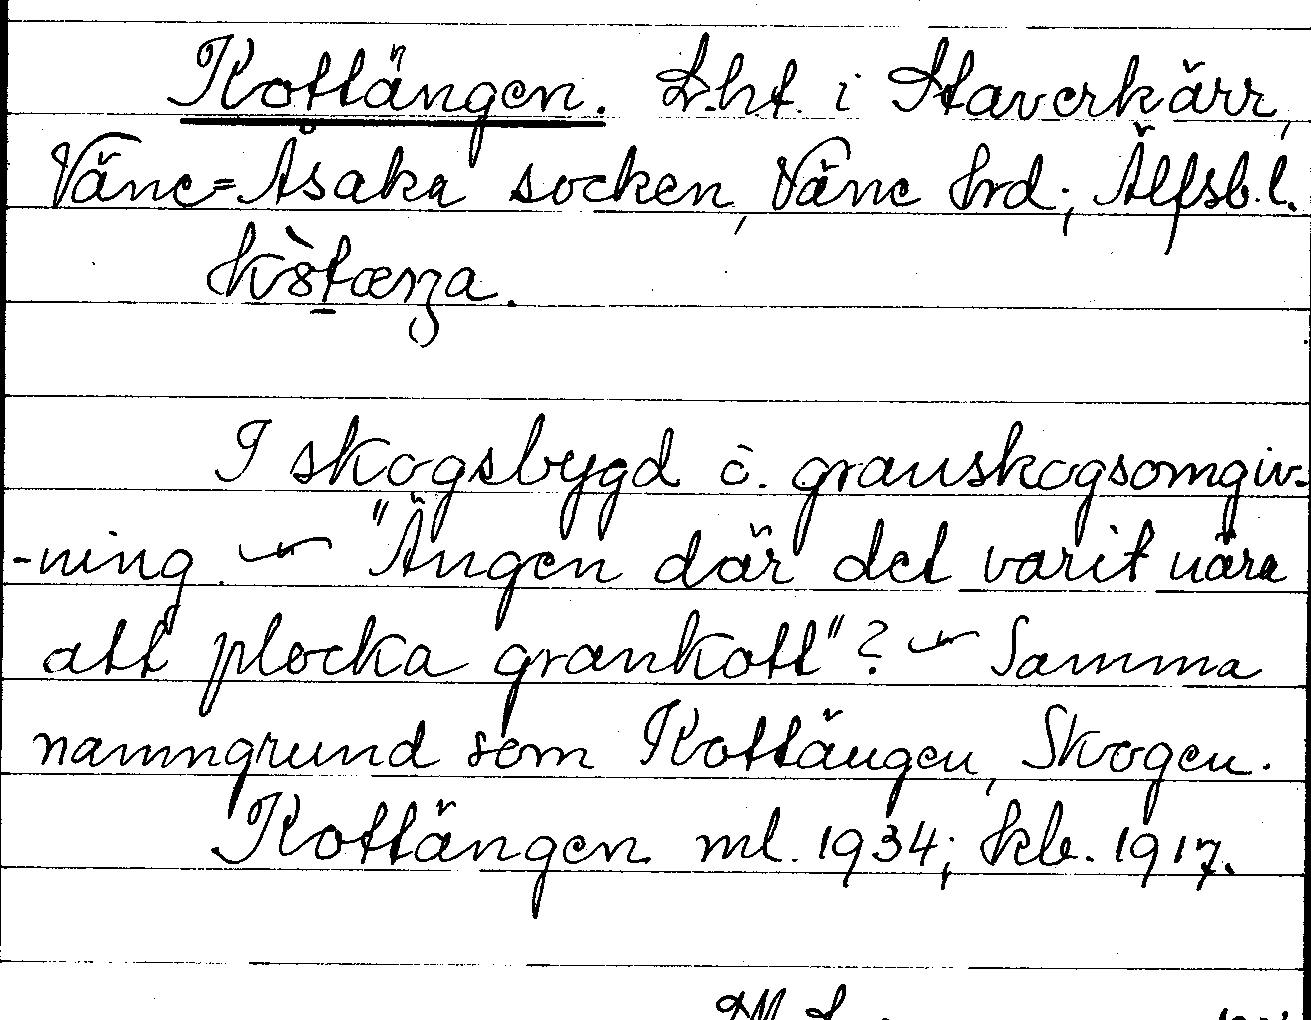 Kottängen. L.ht. i Staverkärr,
Väne=Åsaka socken, Väne hrd; Älfsb. l.
I skogsbygd o. granskogsomgiv-
-ning. — "Ängen där det varit nära
att plocka grankott"? — Samma
namngrund som Kottängen, Skogen.
Kottängen ml. 1934; kb. 1917.